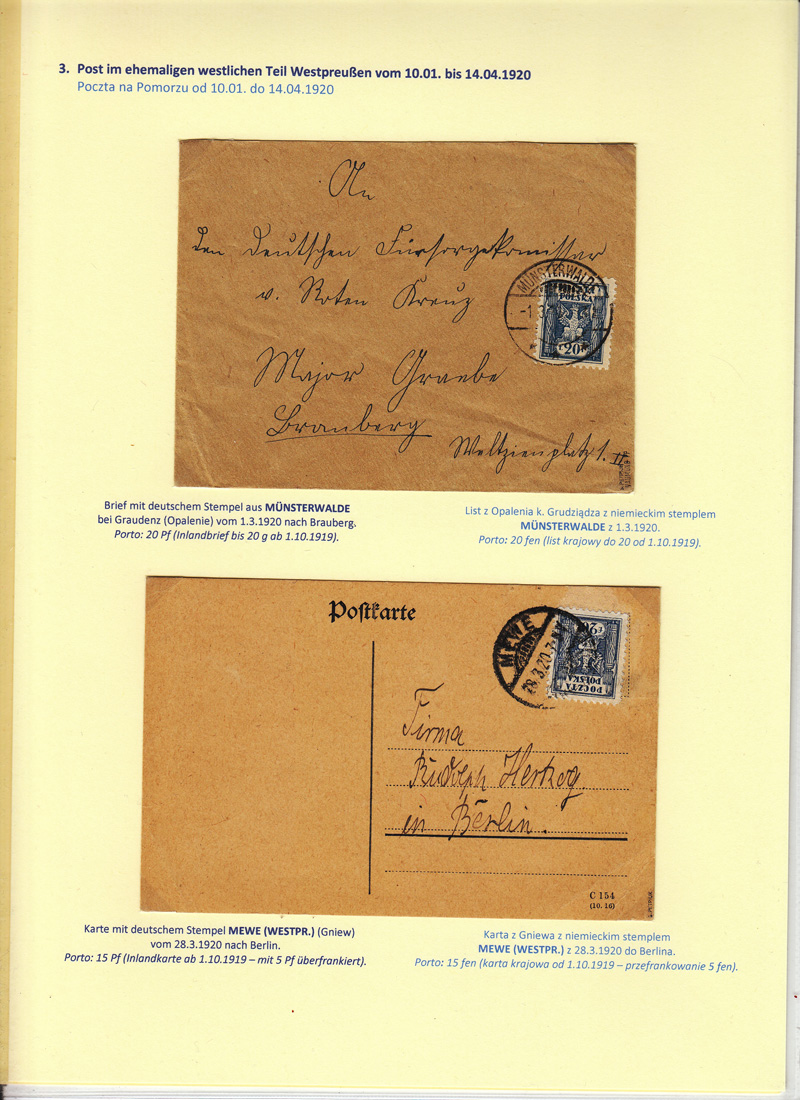 3. Post im ehemaligen westlichen Teil Westpreußen vom 10.01. bis 14.04.1920
Poczta na Pomorzu od 10.01. do 14.04.1920
An
den Deutschen Fürsorgekomissar
v. Roten Kreuz
Major Graebe
Bramberg
Weltzienplatz 1. II
MÜNSTERWALDE
-1.3.
POCZTA
POLSKA
20
Brief mit deutschem Stempel aus MÜNSTERWALDE
bei Graudenz (Opalenie) vom 1.3.1920 nach Brauberg.
Porto: 20 Pf (Inlandbrief bis 20 g ab 1.10.1919).
List z Opalenia k. Grudziądza z niemieckim stemplem
MÜNSTERWALDE z 1.3.1920.
Porto: 20 fen (list krajowy do 20 od 1.10.1919).
Postkarte
MEWE
28.3.20.
20
POCZTA
POLSKA
Firma
Rudolph Hertzog
in Berlin.
C 154
(10. 16)
Karte mit deutschem Stempel MEWE (WESTPR.) (Gniew)
vom 28.3.1920 nach Berlin.
Porto: 15 Pf (Inlandkarte ab 1.10.1919 – mit 5 Pf überfrankiert).
Karta z Gniewa z niemieckim stemplem
MEWE (WESTPR.) z 28.3.1920 do Berlina.
Porto: 15 fen (karta krajowa od 1.10.1919 – przefrankowanie 5 fen).